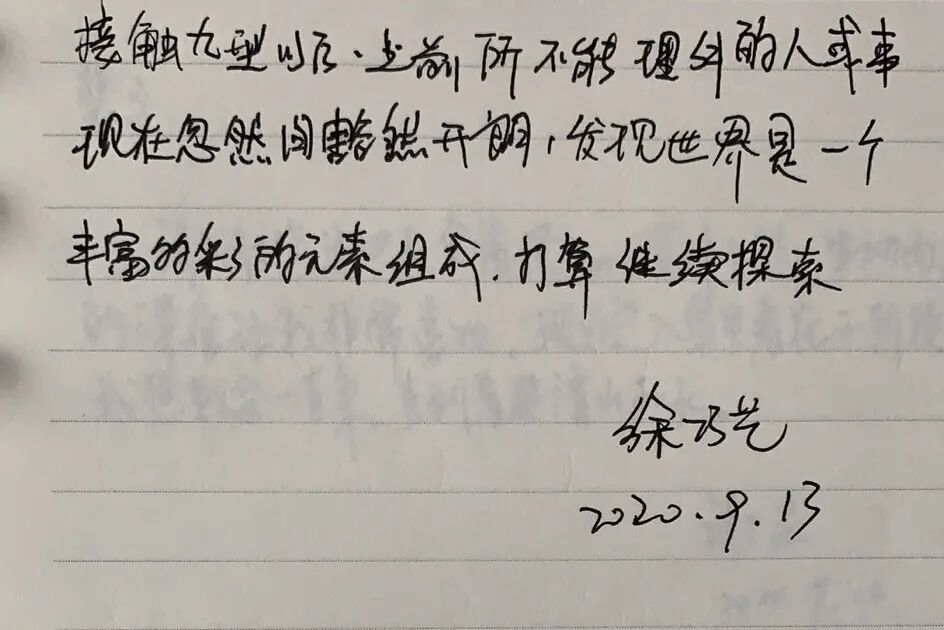 接触九型以后、之前所不能理解的人或事
现在忽然间豁然开朗，发现世界是一个
丰富的多彩的元素组成.打算继续探索
徐巧艺
2020.9.13